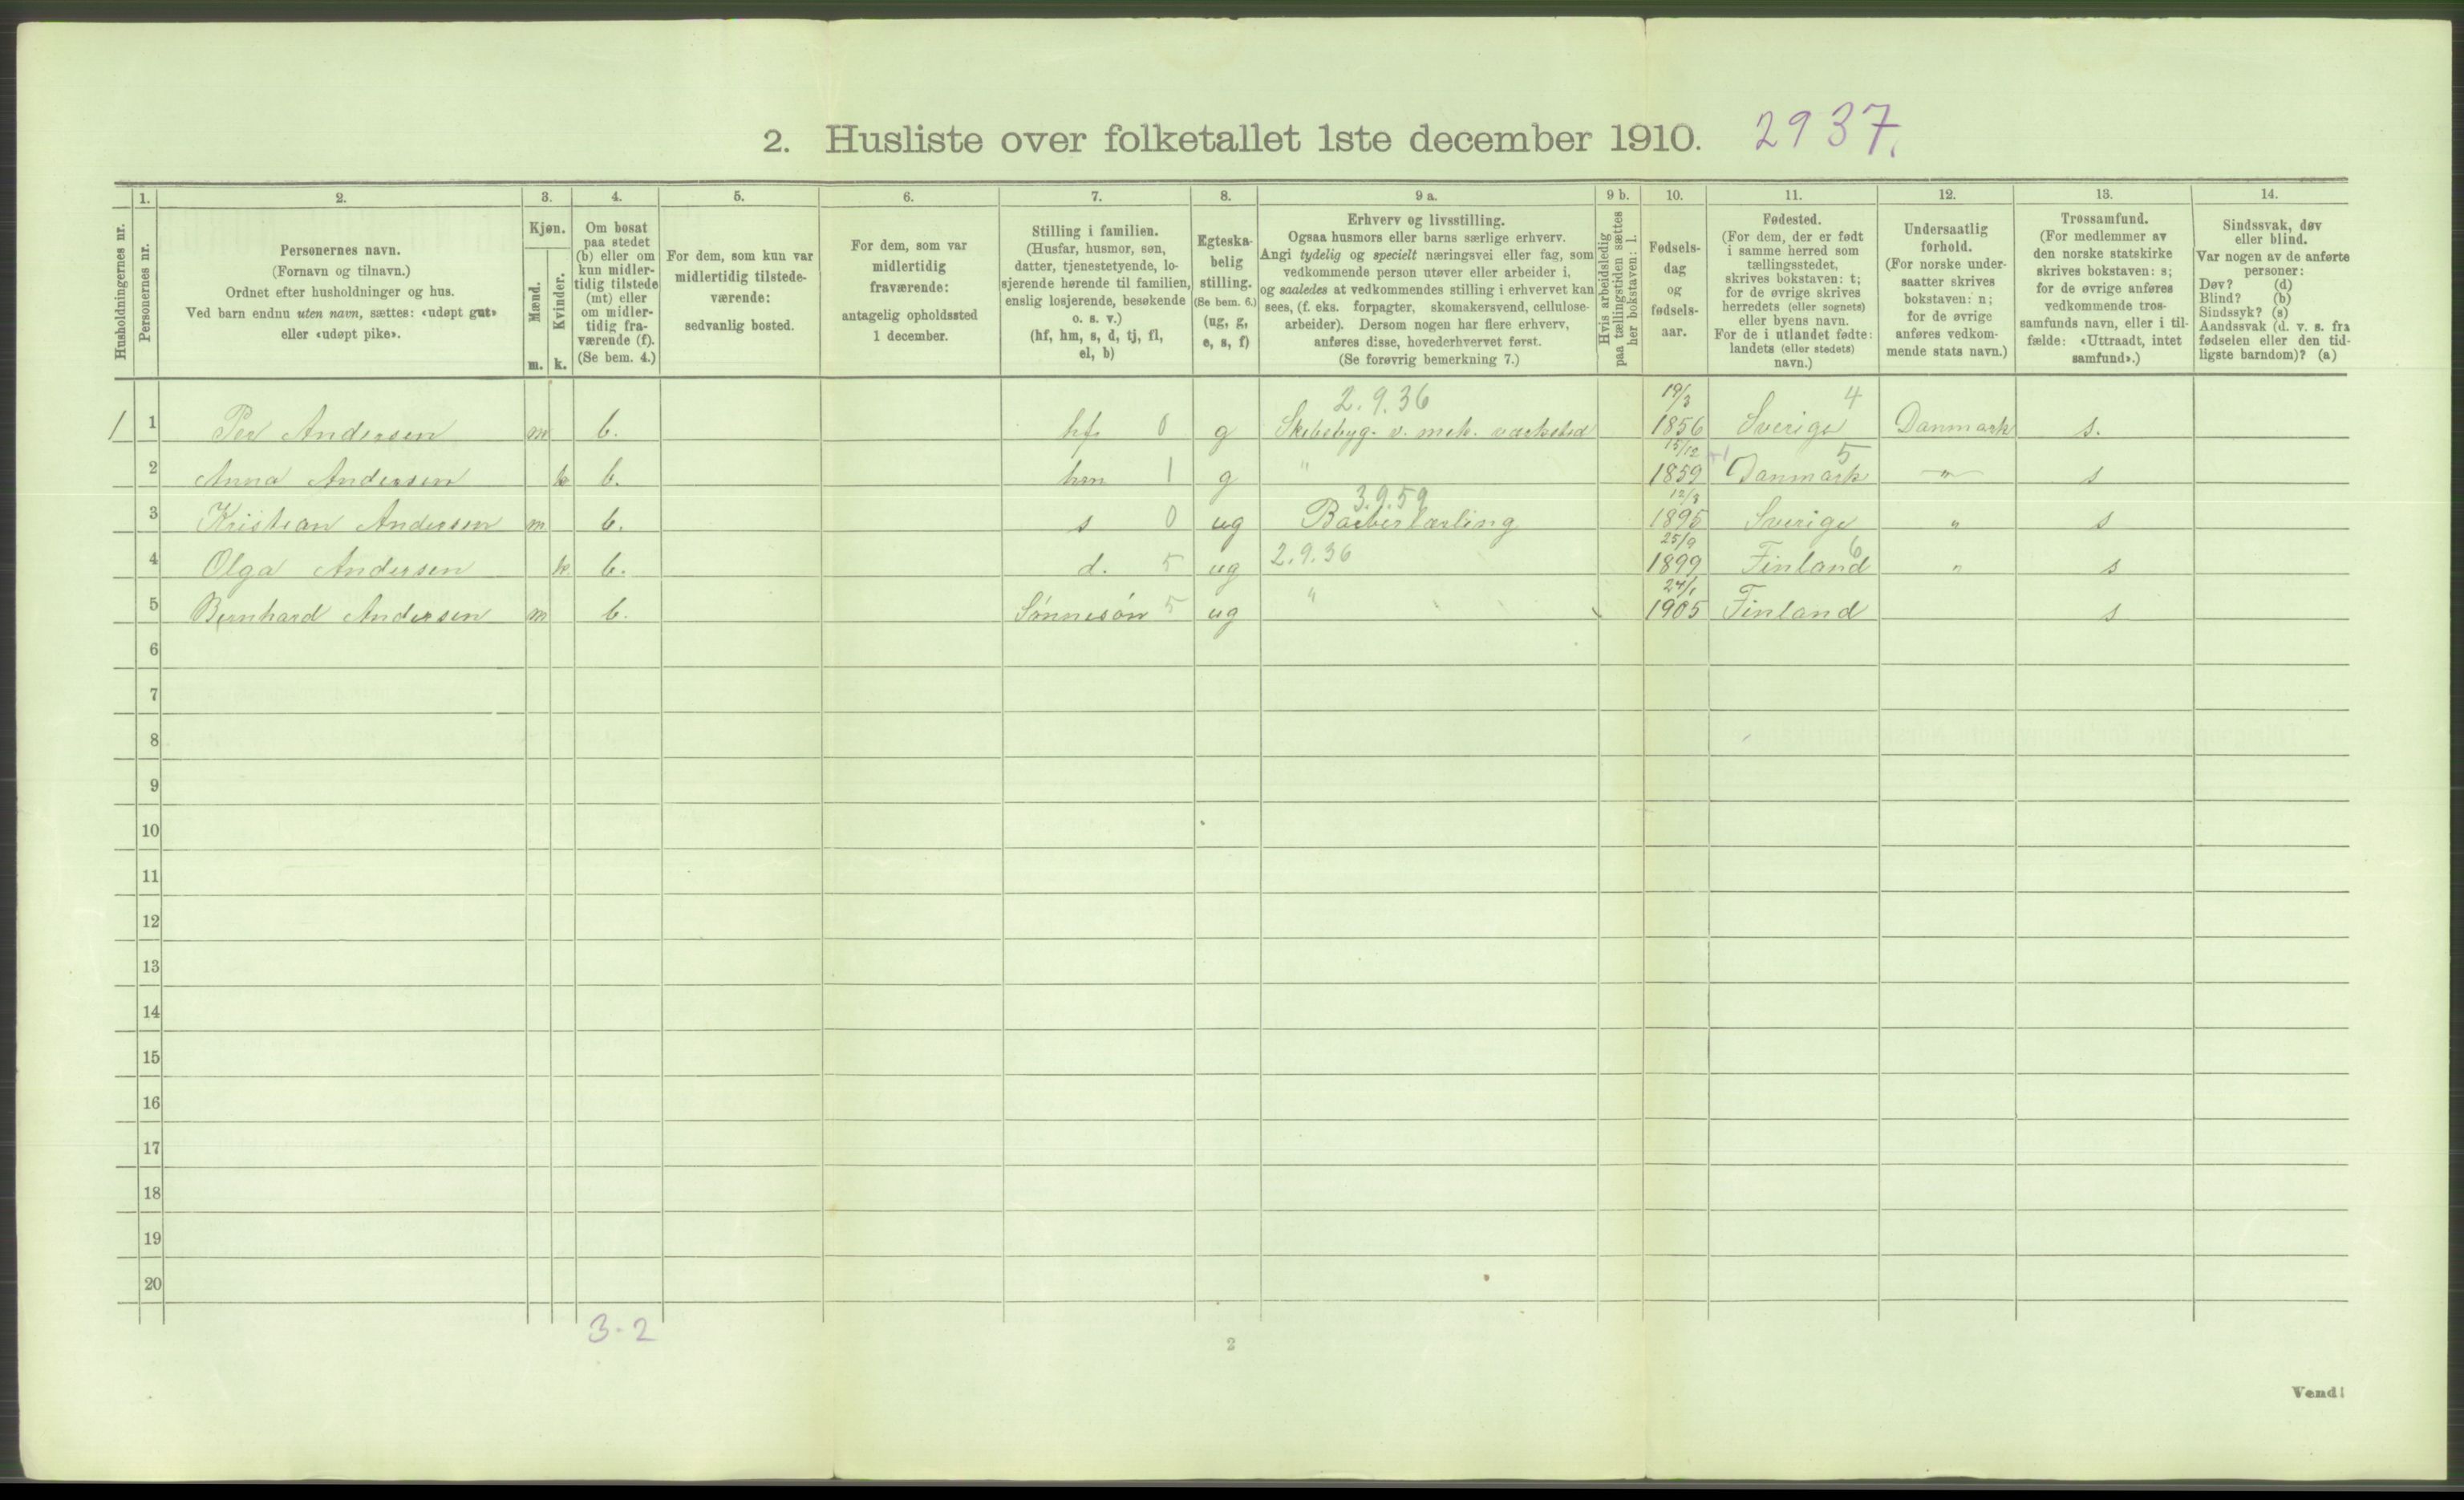 2. Husliste over folketallet 1ste december 1910. 2937.
Husholdningernes nr.
1.
Personernes nr.
2.
Personernes navn.
(Fornavn og tilnavn.)
Ordnet efter husholdninger og hus.
Ved barn endnu uten navn, sættes: «udøpt gut»
eller «udøpt pike».
3.
Kjøn.
Mænd.
m.
Kvinder.
k.
4.
Om bosat
paa stedet
(b) eller om
kun midler-
tidig tilstede
(mt) eller
om midler-
tidig fra-
værende (f).
(Se bem. 4.)
5.
For dem, som kun var
midlertidig tilstede-
værende:
sedvanlig bosted.
6.
For dem, som var
midlertidig
fraværende:
antagelig opholdssted
1 december.
7.
Stilling i familien.
(Husfar, husmor, søn,
datter, tjenestetyende, lo-
sjerende hørende til familien,
enslig losjerende, besøkende
o. s. v.)
(hf, hm, s, d, tj, fl,
el, b)
8.
Egteska-
belig
stilling.
(Se bem. 6.)
(ug, g,
e, s, f)
9 a.
Erhverv og livsstilling.
Ogsaa husmors eller barns særlige erhverv.
Angi tydelig og specielt næringsvei eller fag, som
vedkommende person utøver eller arbeider i,
og saaledes at vedkommendes stilling i erhvervet kan
sees, (f. eks. forpagter, skomakersvend, cellulose-
arbeider). Dersom nogen har flere erhverv,
anføres disse, hovederhvervet først.
(Se forøvrig bemerkning 7.)
9 b.
Hvis arbeidsledig
paa tællingstiden sættes
her bokstaven: l.
10.
Fødsels-
dag
og
fødsels-
aar.
11.
Fødested.
(For dem, der er født
i samme herred som
tællingsstedet,
skrives bokstaven: t;
for de øvrige skrives
herredets (eller sognets)
eller byens navn.
For de i utlandet fødte:
landets (eller stedets)
navn.)
12.
Undersaatlig
forhold.
(For norske under-
saatter skrives
bokstaven: n;
for de øvrige
anføres vedkom-
mende stats navn.)
13.
Trossamfund.
(For medlemmer av
den norske statskirke
skrives bokstaven: s;
for de øvrige anføres
vedkommende tros-
samfunds navn, eller i til-
fælde: «Uttraadt, intet
samfund».)
14.
Sindssvak, døv
eller blind.
Var nogen av de anførte
personer:
Døv? (d)
Blind? (b)
Sindssyk? (s)
Aandssvak (d. v. s. fra
fødselen eller den tid-
ligste barndom)? (a)
2.9.36 19/3 4
1 1 Per Andersen m b. hf. 0 g Skibsbyg. v. mek. værksted 1856 Sverige Danmark s.
15/12 5
2 Anna Andersen k b. hm 1 g " 1859 Danmark " s
3.9.59 12/3
3 Kristian Andersen m b. s 0 ug Barberlærling 1895 Sverige " s
25/9 6
4 Olga Andersen k b. d. 5 ug 2.9.36 1899 Finland " s
24/1
5 Bernhard Andersen m b. Sønnesøn 5 ug " 1905 Finland s
6
7
8
9
10
11
12
13
14
15
16
17
18
19
20
3-2
2
Vend!